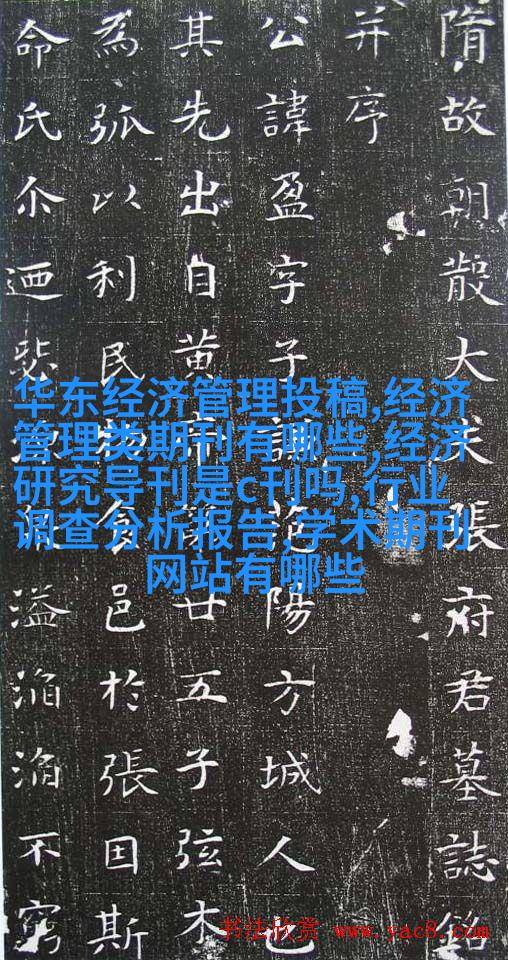 隋故朝散大夫張府君墓誌銘
并序
公諱盈字子范陽方城人也
其先出自黄帝第廿五子弦木
為弧以利民食邑於張因斯
命氏尒迺溢滔滔不窮
华东经济管理投稿,经济
管理类期刊有哪些,经济
研究导刊是c刊吗,行业
调查分析报告,学术期刊
网站有哪些
书法欣赏 www.yac8.com